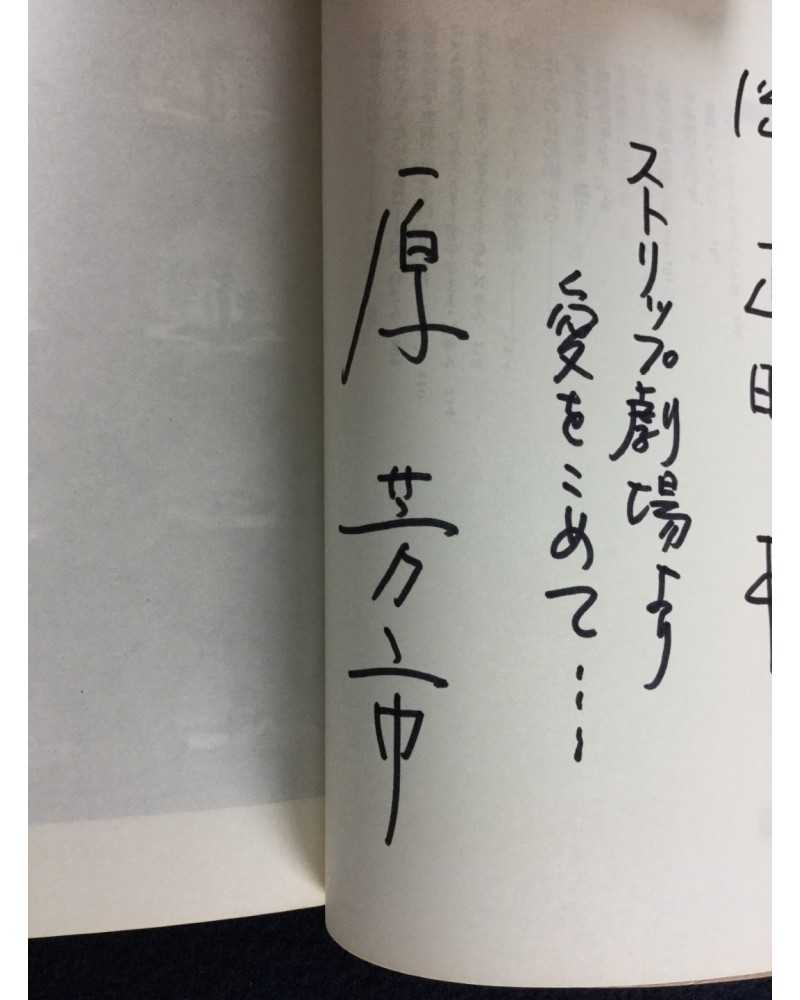 ストリップ劇場より
愛をこめて…
原芳市